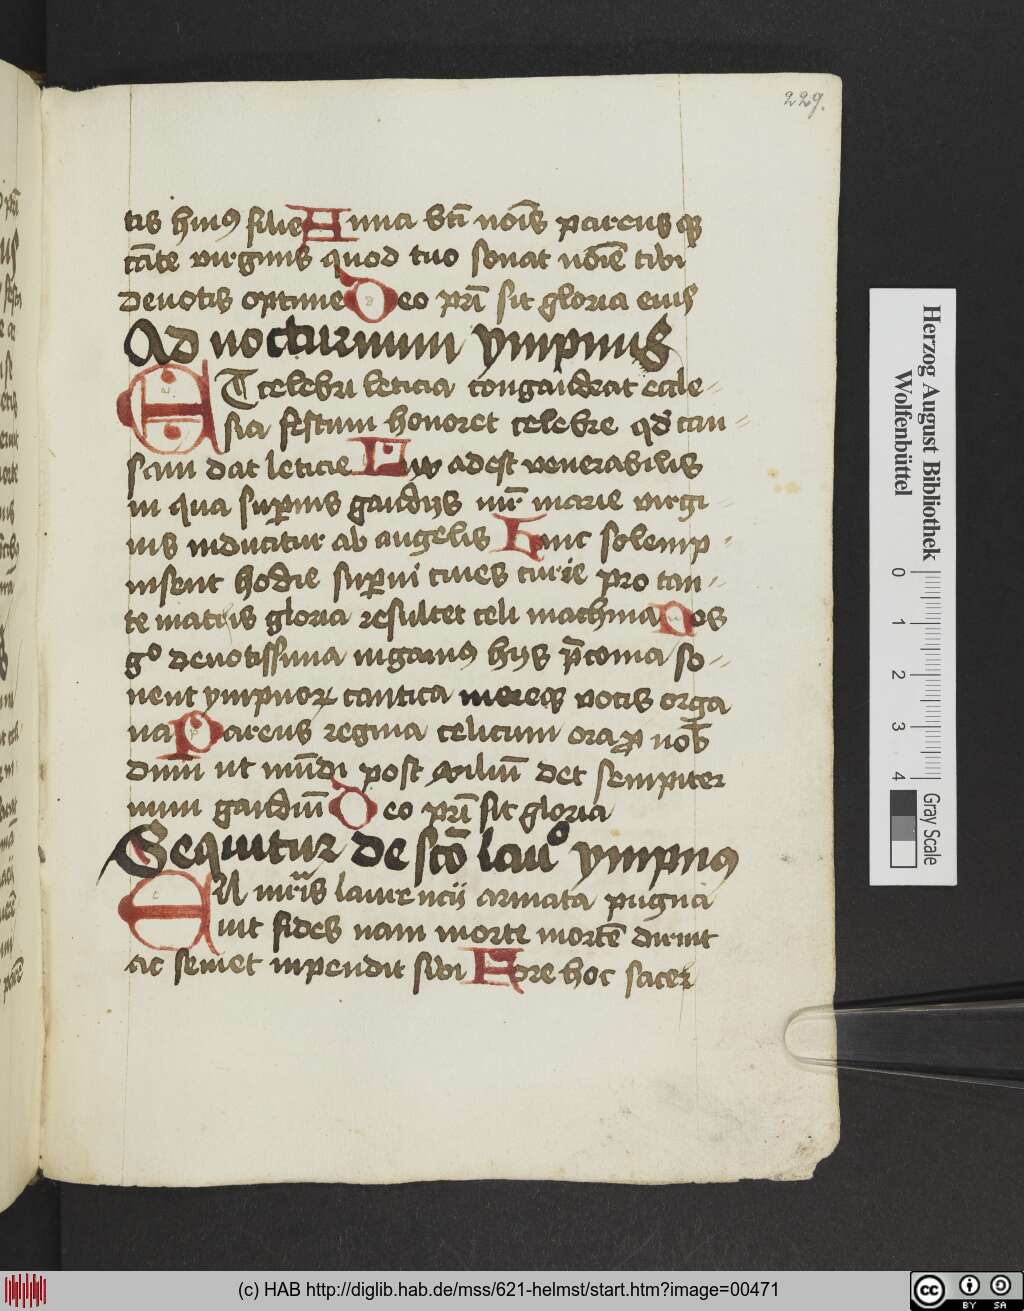 229.
tis huiꝰ filie Anna bt̄i nōis parensqꝫ
tāte virginis quod tuo sonat nōie tibi
deuotis optime Deo pr̄i sit gloria eius
Ad nocturnum ympnus
ET celebri leticia congaudeat eccle-
sia festum honoret celebre qd̛ cau-
sam dat leticie Lux adest venerabilis
in qua supernis gaudijs mr̄ marie virgi-
nis inducitur ab angelis Hanc solemp-
nisent hodie superni ciues curie pro tan-
te matris gloria resultet celi machina Nos
gͦ deuotissima iugamꝰ hijs p̄conia so-
nent ympnoꝝ cantica mereqꝫ vocis orga
na Parens regina celicum ora ꝓ nob̄
dum ut mūdi post exiliū det sempiter
num gaudiū Deo pr̄i sit gloria
Sequitur de sc̄o lauͦ ympnꝰ
EN mr̄is laurencij armata pugna
uit fides nam morte mortē diruit
ac semet inpendit sibi Fore hoc sacer
Herzog August Bibliothek
Wolfenbüttel
0 1 2 3 4
Gray Scale
(c) HAB http://diglib.hab.de/mss/621-helmst/start.htm?image=00471
cc BY SA